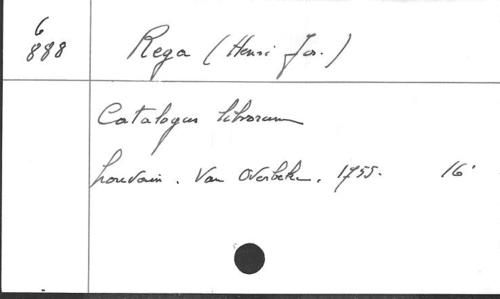 6
888
Rega (Henri Jos.)
Catalogus librorum
Louvain. Van Overbeke. 1755. 16°